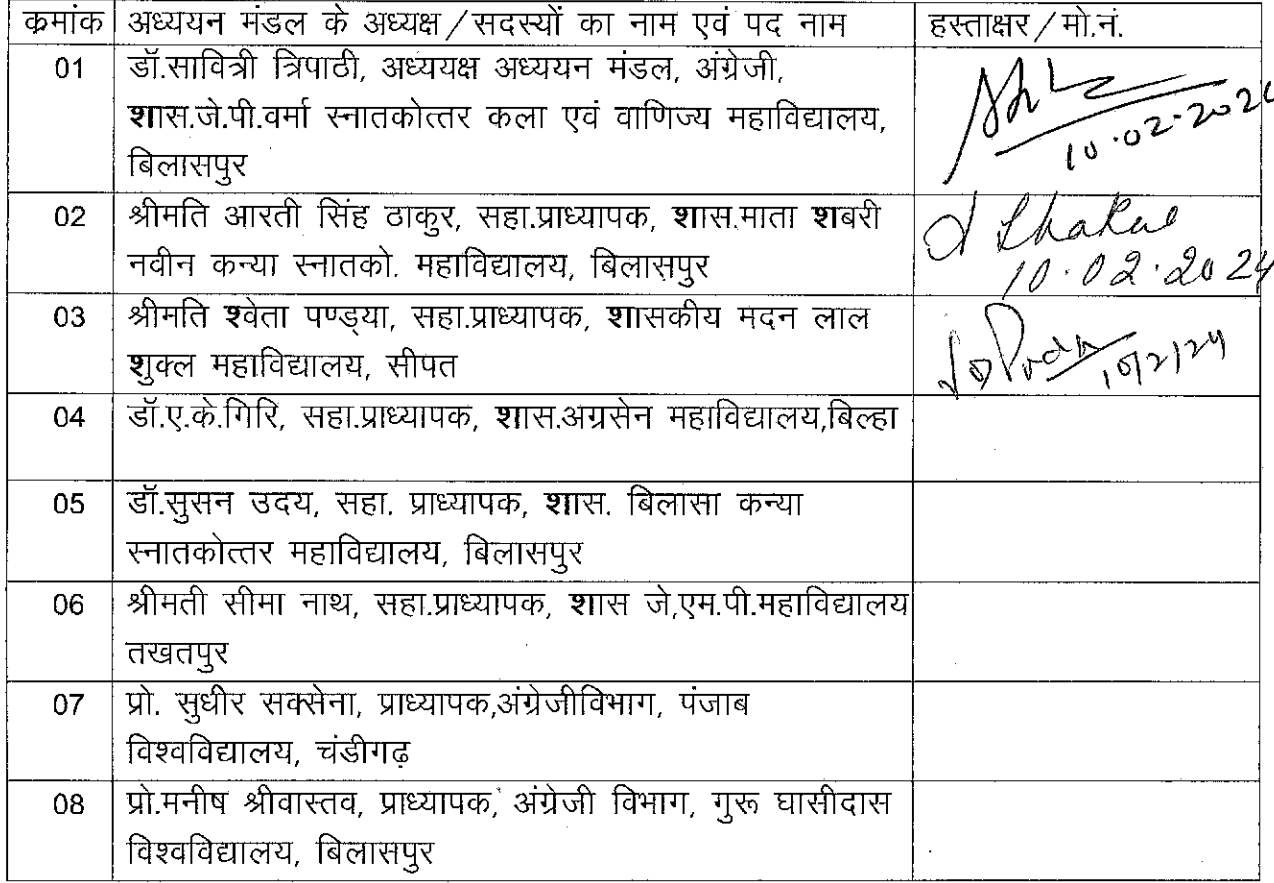 क्रमांक अध्ययन मंडल के अध्यक्ष/सदस्यों का नाम एवं पद नाम हस्ताक्षर/मो.नं.
01 डॉ.सावित्री त्रिपाठी, अध्ययक्ष अध्ययन मंडल, अंग्रेजी,
शास.जे.पी.वर्मा स्नातकोत्तर कला एवं वाणिज्य महाविद्यालय,
बिलासपुर
10.02.2024
02 श्रीमति आरती सिंह ठाकुर, सहा.प्राध्यापक, शास.माता शबरी
नवीन कन्या स्नातको. महाविद्यालय, बिलासपुर
10.02.2024
03 श्रीमति श्वेता पण्ड्या, सहा.प्राध्यापक, शासकीय मदन लाल
शुक्ल महाविद्यालय, सीपत
10/2/24
04 डॉ.ए.के.गिरि, सहा.प्राध्यापक, शास.अग्रसेन महाविद्यालय,बिल्हा
05 डॉ.सुसन उदय, सहा. प्राध्यापक, शास. बिलासा कन्या
स्नातकोत्तर महाविद्यालय, बिलासपुर
06 श्रीमती सीमा नाथ, सहा.प्राध्यापक, शास जे,एम.पी.महाविद्यालय
तखतपुर
07 प्रो. सुधीर सक्सेना, प्राध्यापक,अंग्रेजीविभाग, पंजाब
विश्वविद्यालय, चंडीगढ़
08 प्रो.मनीष श्रीवास्तव, प्राध्यापक, अंग्रेजी विभाग, गुरू घासीदास
विश्वविद्यालय, बिलासपुर